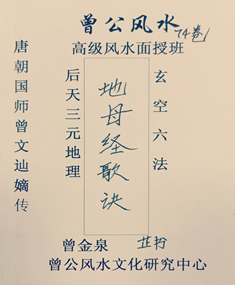 曾公风水 74卷
高级风水面授班
唐朝国师曾文辿嫡传
后天三元地理
地母经歌诀
玄空六法
曾金泉
曾公风水文化研究中心